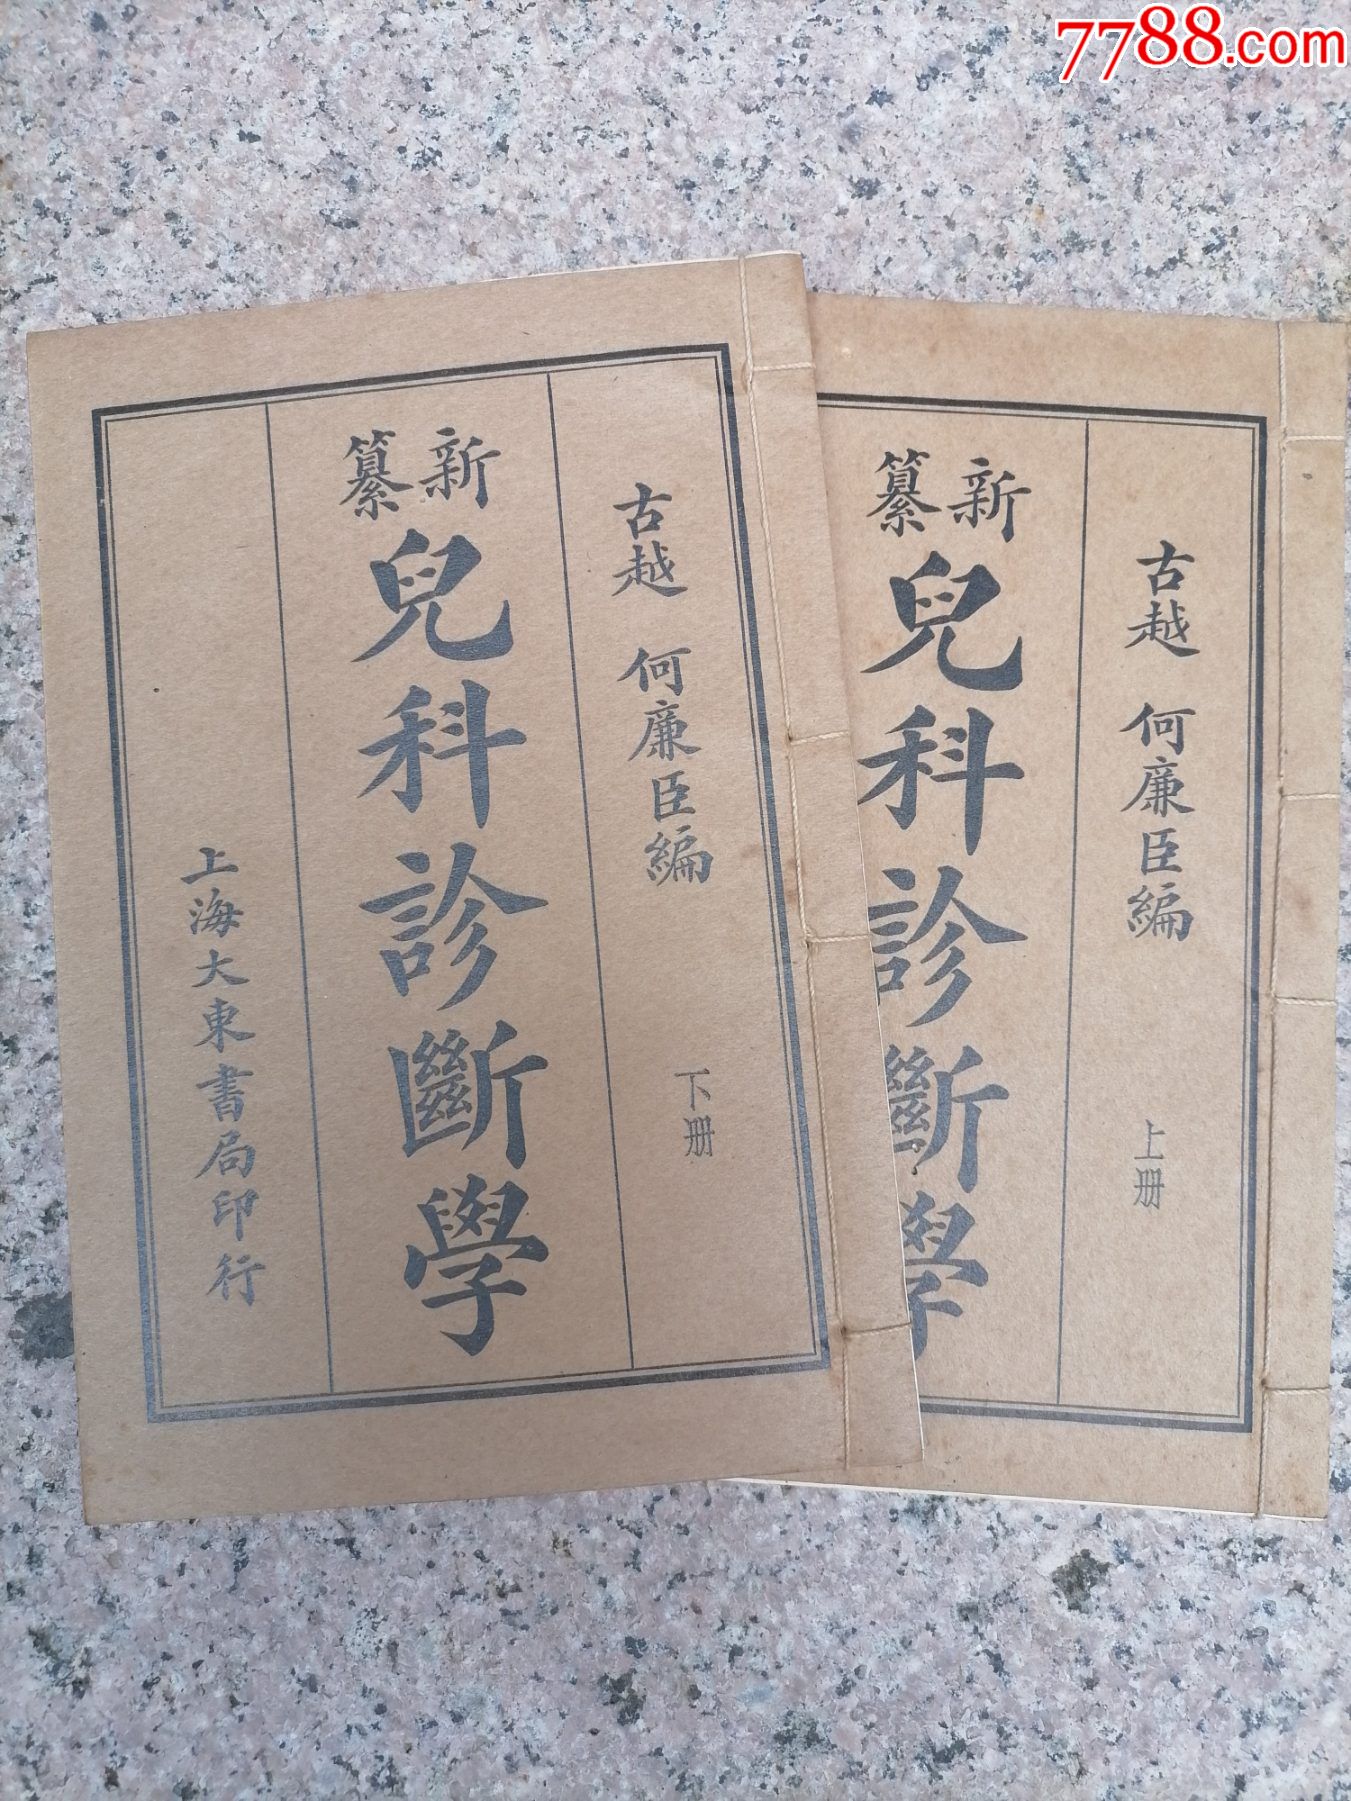 7788.com
古越 何廉臣編
下册
新纂
兒科診斷學
上海大東書局印行
古越 何廉臣編
上册
新纂
兒科診斷學